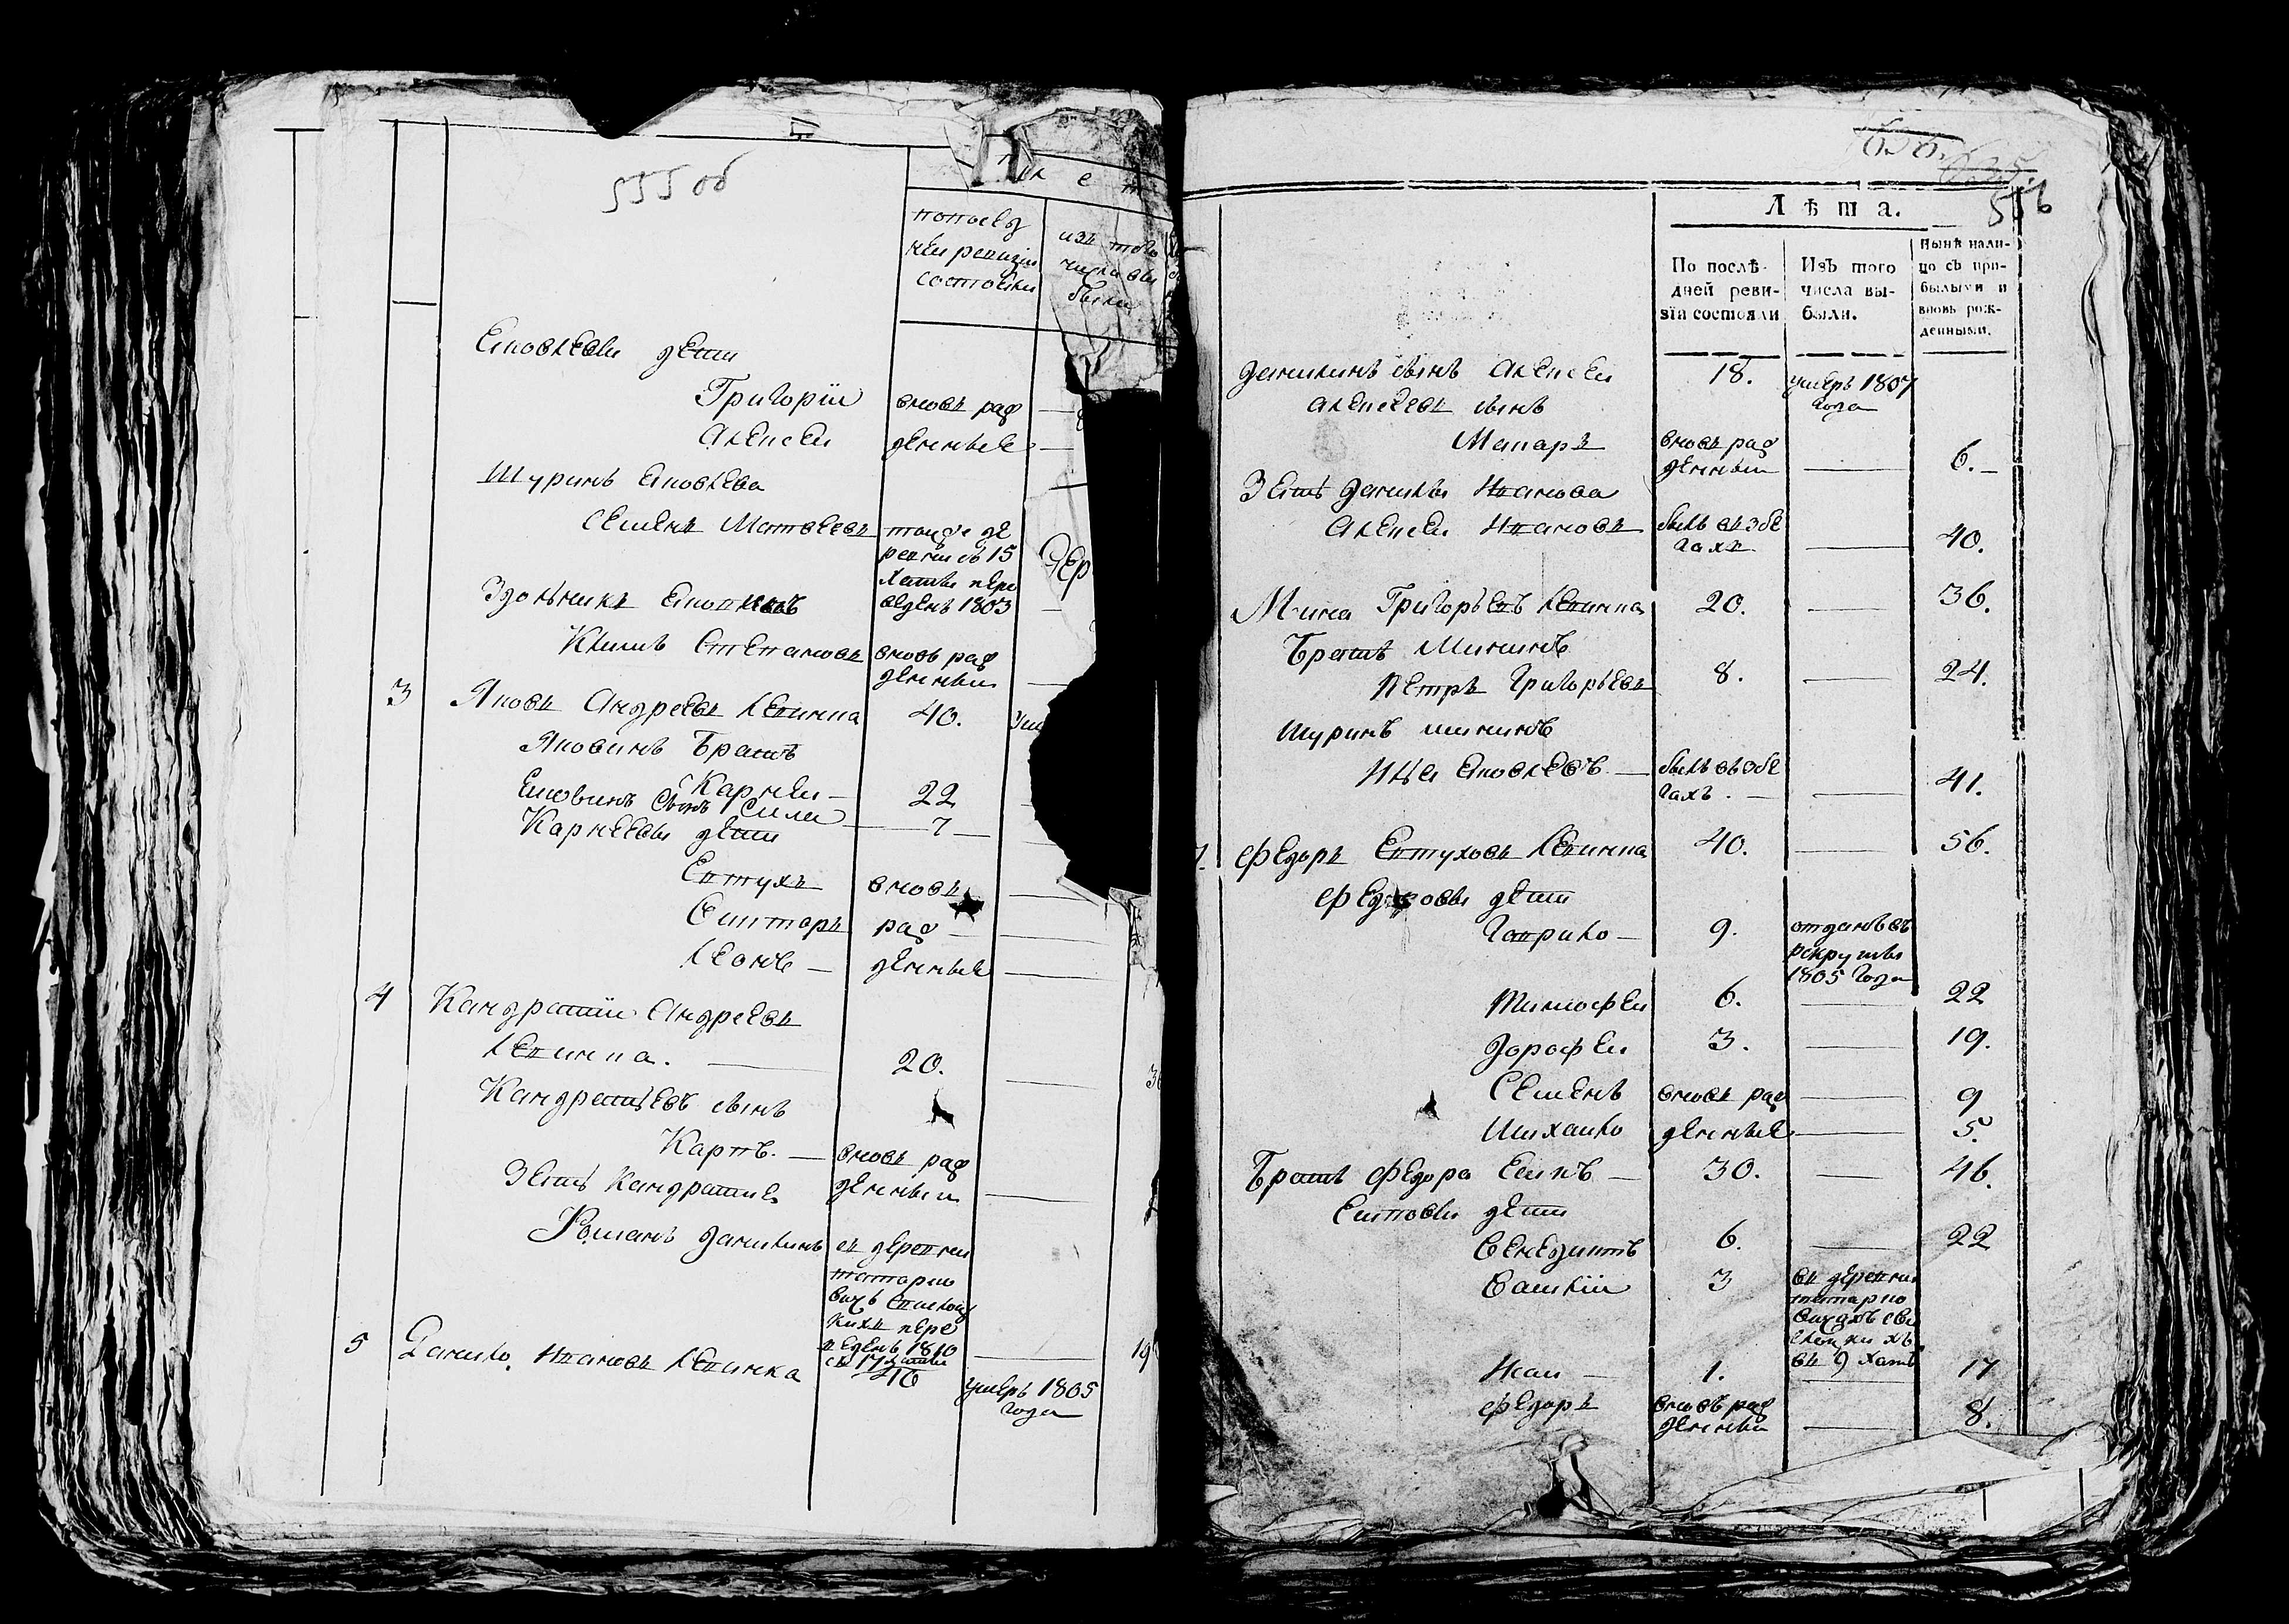 555 об
Л е т
попослѣд
ней ревизіи
состояли
изъ того
числа вы
были
Еповлевы дети
Григорій вновъ раж
Алексей денные
Шуринъ Еповлева
Семенъ Матвеевъ тойже де
ревни съ 15
хаты пере
веденъ 1803
Здольникъ
Климъ Степановъ вновъ раж
денный
3 Яковъ Андреевъ Левинка 40.
Яковинъ Братъ
Карней 22
Еповинъ Сынъ Сила 7
Карнеевы дети
Евтухъ вновъ
раж
Леонъ денные
4 Кандратій Андреевъ
Левинка. 20.
Кандратьевъ сынъ
Карпъ. вновъ раж
Зять Кандратиев денный
Романъ Данилинъ въ деревни
пере
веденъ 1810
5 Данило Ивановъ Левинка
умеръ 1805
года
556
Лѣта.
По послѣ-
дней реви-
зіи состояли
Изъ того
числа вы-
были.
Нынѣ нали-
цо съ при-
былыми и
вновь рож-
денными.
Данилинъ сынъ Алексей 18. умеръ 1807
года
Алексеевъ сынъ
Макаръ вновъ раж
денный 6.
Зять Данилы Иванова
Алексей Ивановъ былъ въ збе
гахъ 40.
Мина Григорьевъ Левинка 20. 36.
Братъ Мининъ
Петръ Григорьевъ 8. 24.
Шуринъ мининъ
былъ въ збе
гахъ. 41.
Федоръ Евтуховъ Левинка 40. 56.
Федоровы дети
Гаврило 9. отданъ въ
рекруты
1805 года
Тимофей 6. 22
Дорофей 3. 19.
Семенъ вновъ раж 9
Михайло денные 5.
Братъ Федора Есипъ 30. 46.
Есиповы дети
Венедиктъ 6. 22
Василій 3 въ деревни
въ 9 хатѣ
Иван 1. 17
Федоръ вновъ раж
денный 8.